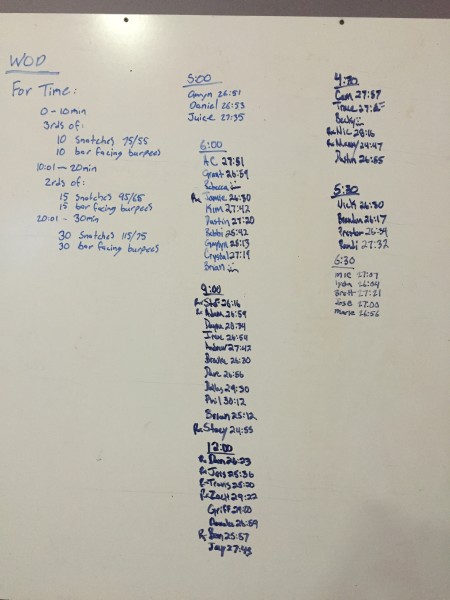 WOD
For Time:
0-10min
3rds of:
10 Snatches 75/55
10 bar facing burpees
10:01 - 20min
2rds of:
15 Snatches 95/65
15 bar facing burpees
20:01 - 30min
30 Snatches 115/75
30 bar facing burpees
5:00
26:51
Daniel 26:53
Juice 27:35
6:00
AC 27:51
Grant 26:59
Rebecca
Rx Jamie 26:30
Kim 27:42
Dustin 27:20
Bobbi 25:42
25:13
Crystal 27:19
Brian
9:00
Rx 26:16
Rx Adam 26:59
Dayna 28:34
Irene 26:54
Andrew 27:42
26:30
Dave 26:56
Dallas 29:30
Phil 30:12
Susan 25:12
Rx Stacy 24:55
12:00
Rx Dan 26:23
Rx Joris 25:36
Rx Travis 25:20
Rx Zach 29:22
Griff 29:00
26:59
Rx Ben 25:57
Jay 27:45
4:30
Cam 27:57
Becky
Rx Nic 28:16
Rx 24:47
Dustin 26:55
5:30
Nick 26:30
Brendan 26:17
Preston 26:59
Randi 27:32
6:30
27:07
Lyon 26:04
Brett 27:21
Jose 27:00
Marie 26:56